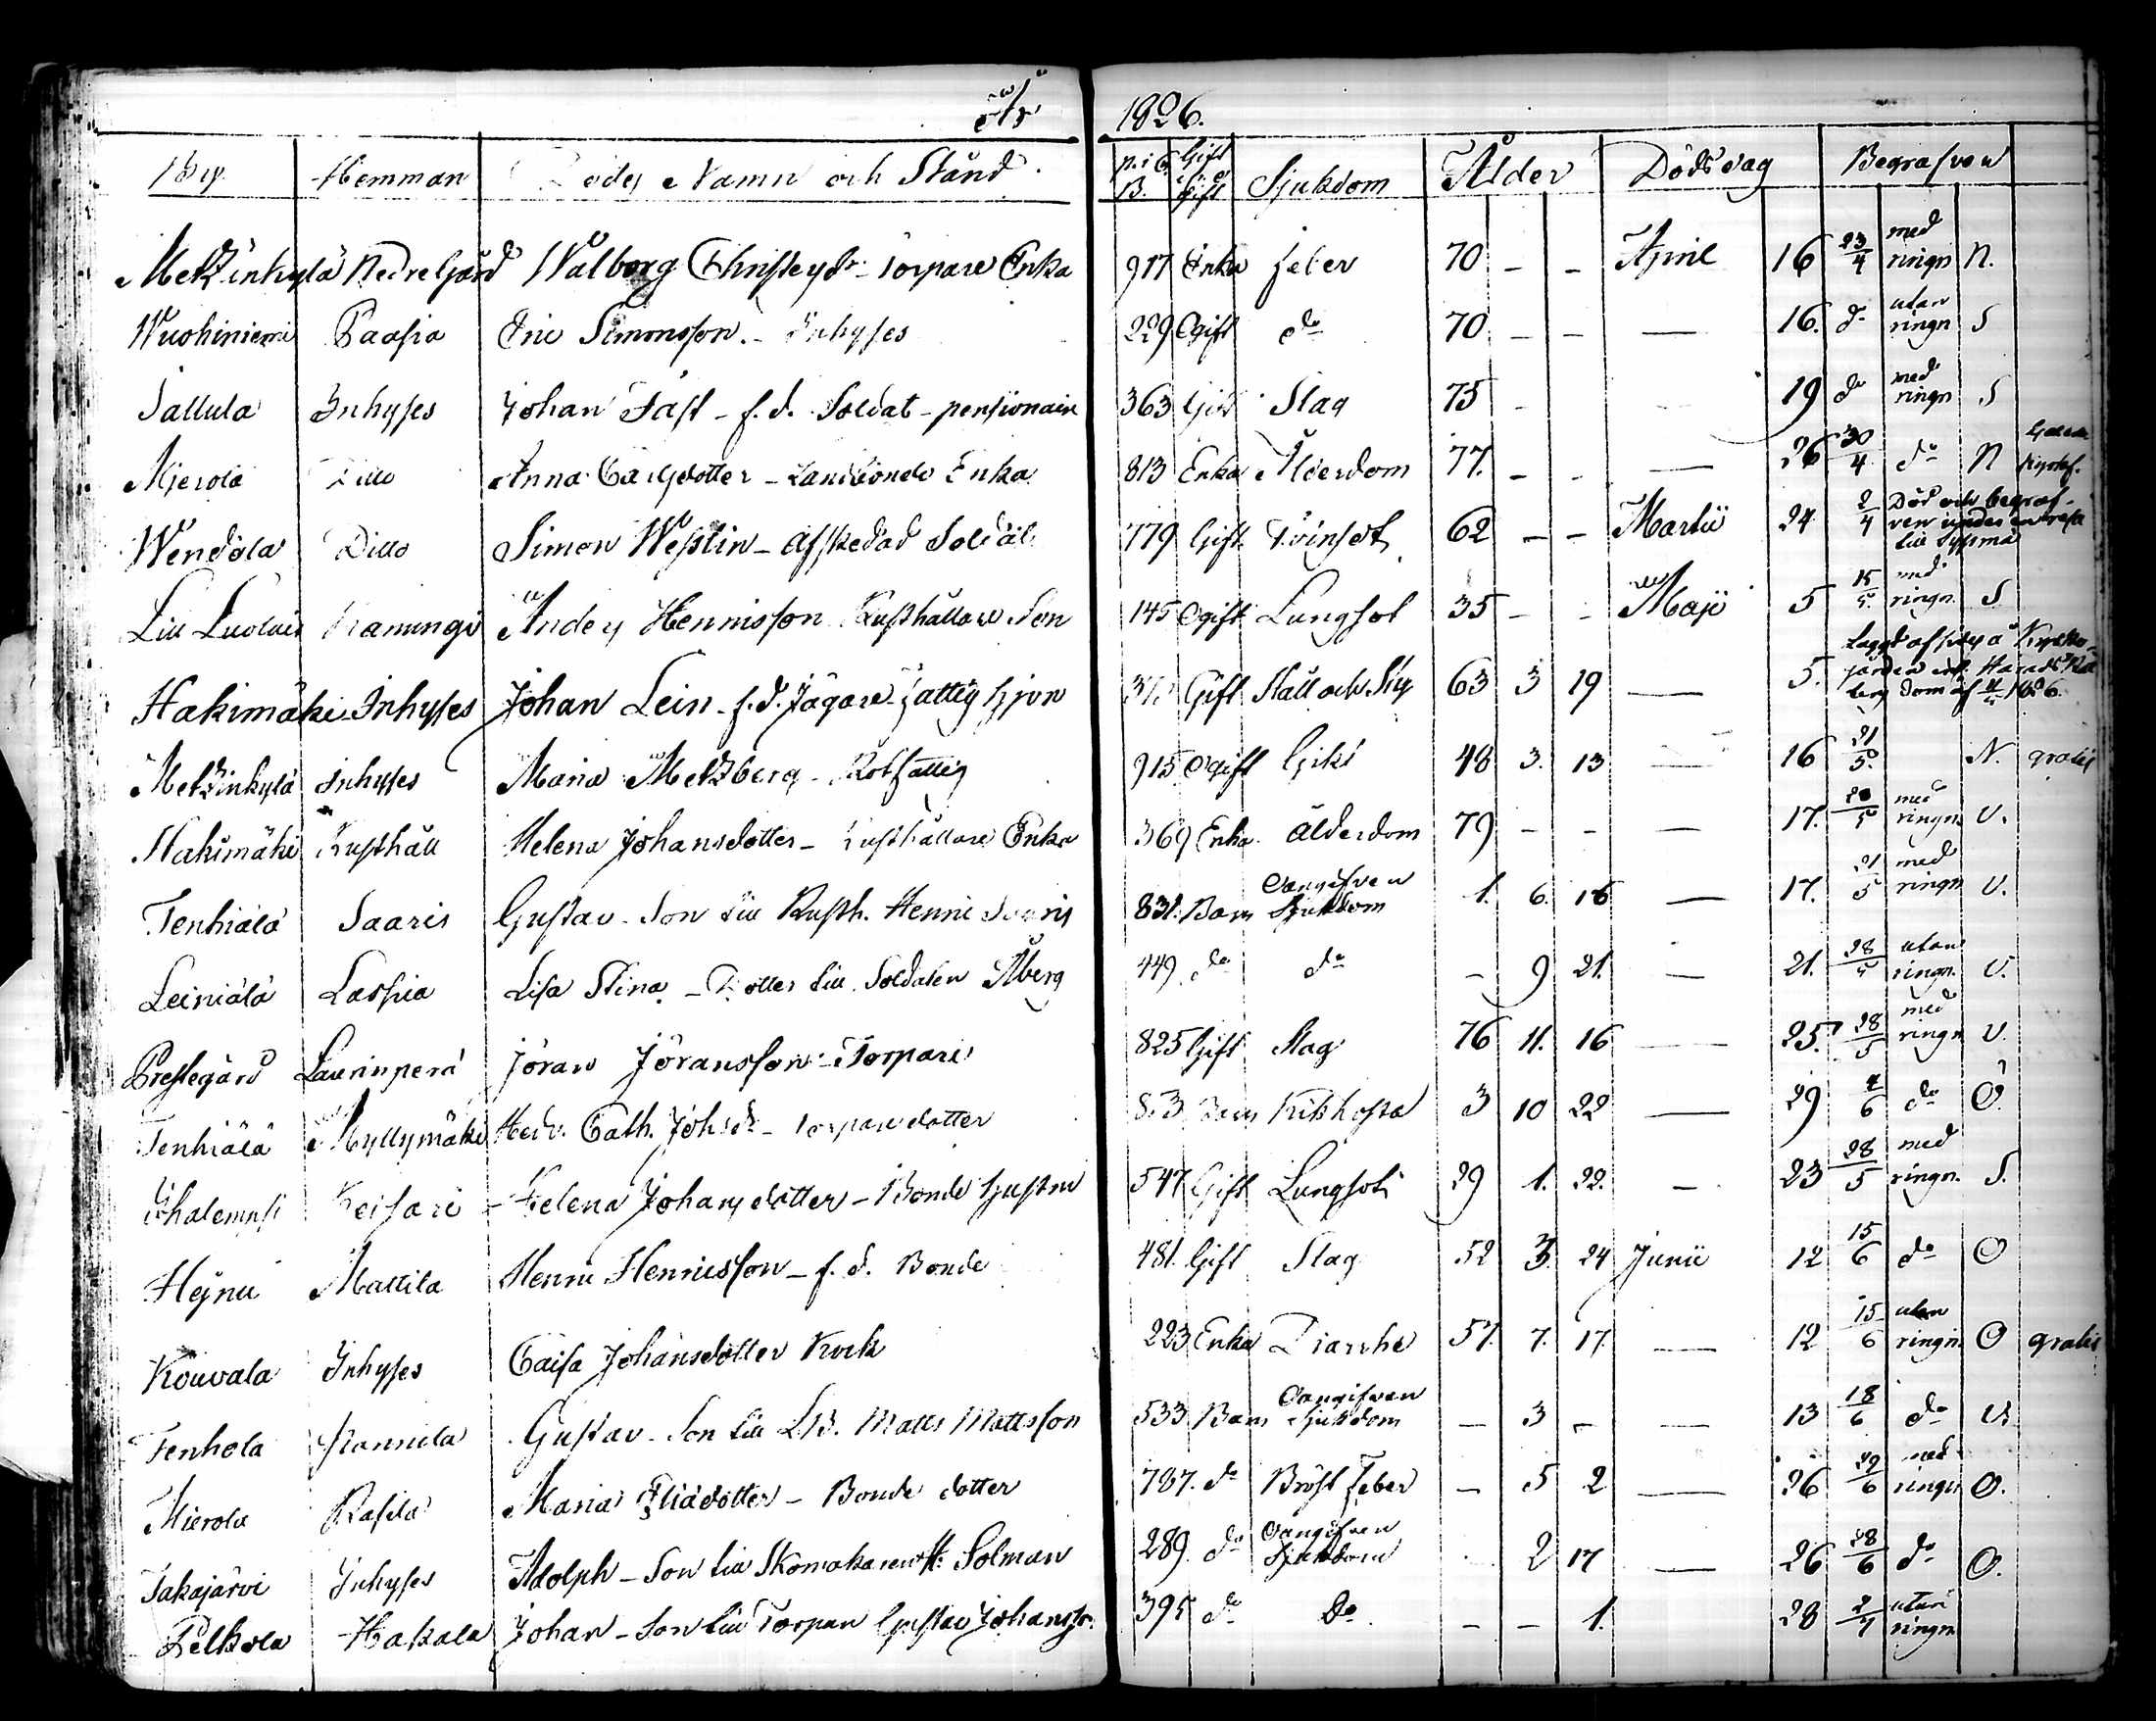 År 1826.
By. Hemman Dödes Namn och Stånd. p. i C.B. Gift Ogift Sjukdom Ålder Dödsdag Begrafven
Metzinkylä Nedregård Walborg Christersdr Torpare Enka 917 Enka feber 70 - - April 16 23/4 med ringn N.
Wuohiniemi Paasia Eric Simonsson. - Inhyses 229 Ogift do 70 - - — 16. do utan ringn S
Sallula Inhyses Johan Fast - f.d. Soldat - pensionair 363 Gift Slag 75 - 19 do med ringn S
Mierola Ditto Anna Carlsdotter - Landbonde Enka 813 Enka Ålderdom 77. - - — 26 30/4 do N
Wendola Ditto Simon Westin - Afskedad Soldat 779 Gift Tvinsot 62 - - Martii 24 2/4 Död och begrafven under en resa till Sysmä
Lill Luolais Kanungi Anders Henricsson Rusthållare Son 145 Ogift Lungsot 35 - - Maji 5 15/5. med ringn. S
Hakimäki Inhyses Johan Lein - f.d. Jägare - fattig hjon Gift Håll och Styg 63 3 19 — 5. Lagd afsides å Kyrkogården
Metzinkylä Inhyses Maria Metzberg - Rotfattig 915 Ogift Gikt 48 3. 13 — 16 21/5. N. gratis
Hakimäki Rusthåll Helena Johansdotter - Rusthållare Enka 369 Enka Ålderdom 79 - - — 17. 20/5 med ringn U.
Tenhiälä Saaris Gustav - Son till Rusth. Henric Saaris 831. Barn Oangifven Sjukdom 1. 6. 16 — 17. 21/5 med ringn U.
Leiniälä Laspia Lisa Stina - Dotter till Soldaten Åberg 449. do do - 9 21. — 21. 28/5 utan ringn. U.
Prestegård Laurinperä Jöran Jöransson - Torpare 825 Gift Slag 76 11. 16 — 25. 28/5 med ringn U.
Tenhiälä Myllymäki Hedv. Cath. Johsdr - Torpare dotter Barn Kikhosta 3 10 22 — 29 4/6 do Ö.
Ihalempsi Keisari Helena Johansdotter - Bonde hustru 547 Gift Lungsot 29 1. 22. — 23 28/5 med ringn. S.
Heinu Mattila Henric Henricsson - f.d. Bonde 481. Gift Slag 52 3. 24 Junii 12 15/6 do O
Kouvala Inhyses Caisa Johansdotter Kock 223 Enka Diarrhe 57. 7. 17. — 12 15/6 utan ringn O gratis
Tenhola Hannula Gustav - Son till L.B. Matts Mattsson 533. Barn Oangifven Sjukdom - 3 - — 13 18/6 do U.
Mierola Rasila Maria Eliædotter - Bonde dotter 787. do Bröst feber - 5 2 — 26 29/6 med ringn O.
Takajärvi Inhyses Adolph - Son till Skomakaren H. Solman 289. do Oangifven Sjukdom 2 17 — 26 28/6 do O.
Pelkola Hakala Johan - Son till Torpare Gustav Johanss. 395 do Do - - 1. 28 2/7 utan ringn